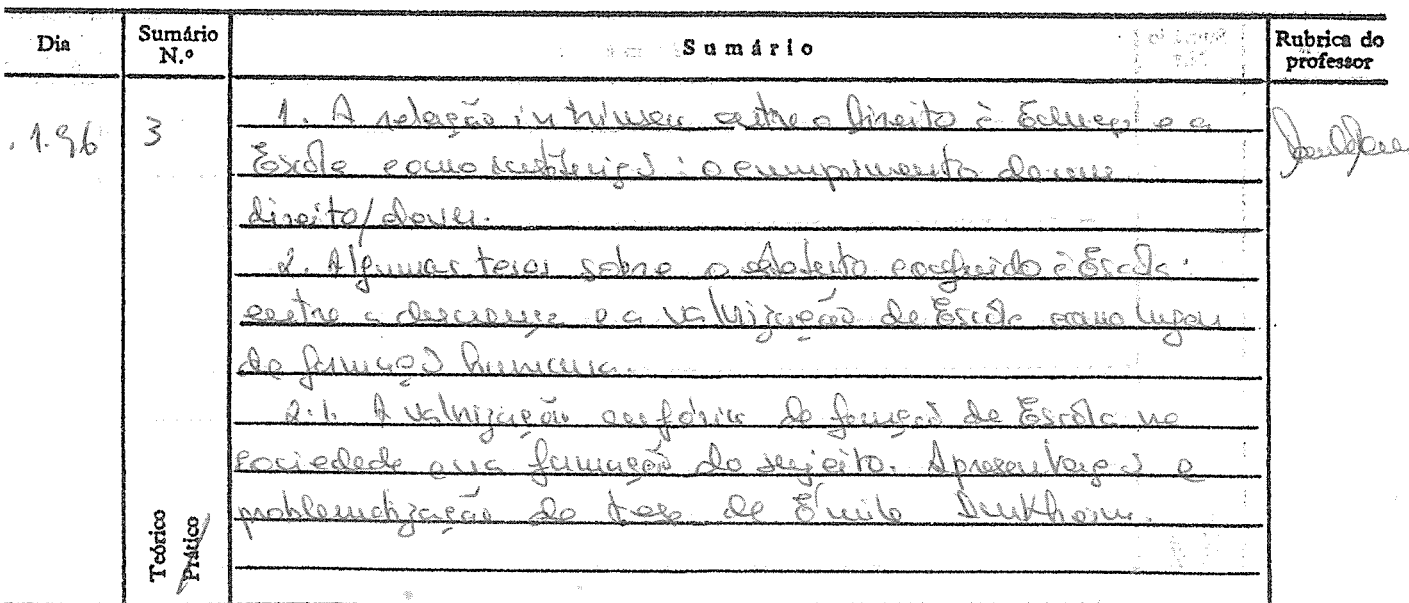 Dia Sumário N.º Sumário Rubrica do professor
.1.96 3 1. A relação intrínseca entre o Direito à Educação e a
Escola como instituição: o cumprimento de um
direito/dever.
2. Algumas teses sobre o estatuto conferido à Escola:
entre a descrença e a valorização da Escola como lugar
de formação humana.
2.1. A valorização eufórica da função da Escola na
sociedade e na formação do sujeito. Apresentação e
problematização da tese de Émile Durkheim.
Teórico
Prático